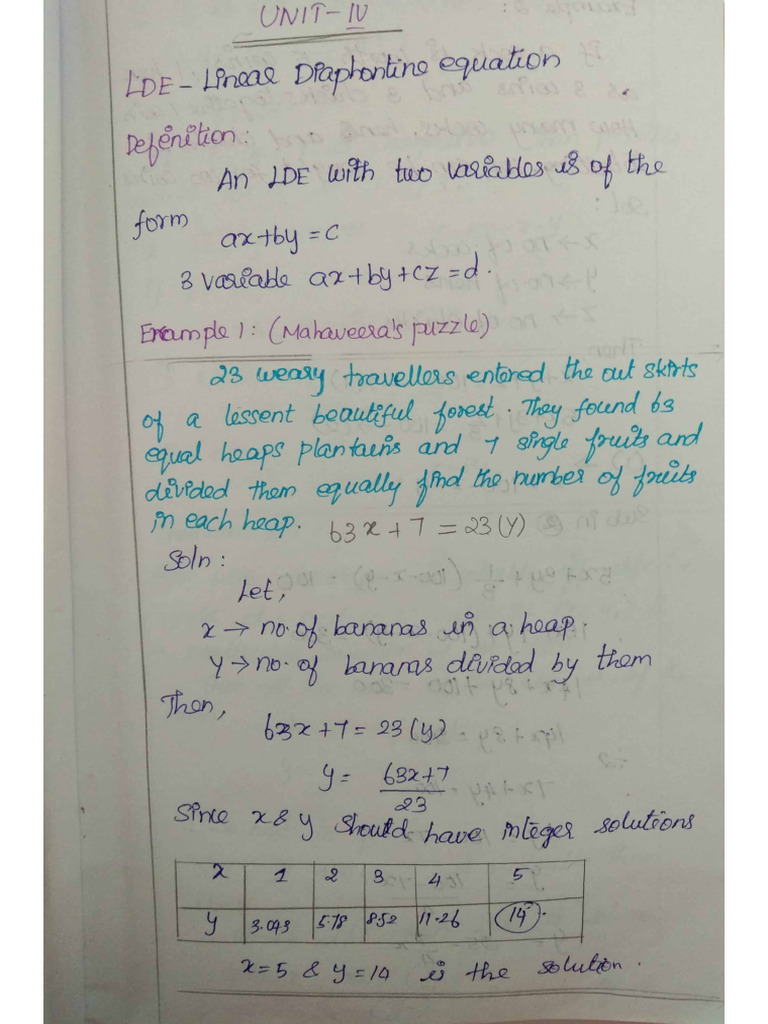 UNIT-IV
LDE - Linear Diaphontine equation
Definition:
An LDE with two variables is of the
form
ax+by = c
3 variable ax+by+cz = d.
Example 1: (Mahaveera's puzzle)
23 weary travellers entered the out skirts
of a lessent beautiful forest. They found 63
equal heaps plantains and 7 single fruits and
divided them equally find the number of fruits
in each heap. 63x+7 = 23(y)
Soln:
Let,
x → no. of bananas in a heap.
y → no. of bananas divided by them
Then,
63x+7 = 23(y)
y = 63x+7
23
Since x & y should have integer solutions
x 1 2 3 4 5
y 3.043 5.78 8.52 11.26 14.
x=5 & y=14 is the solution.